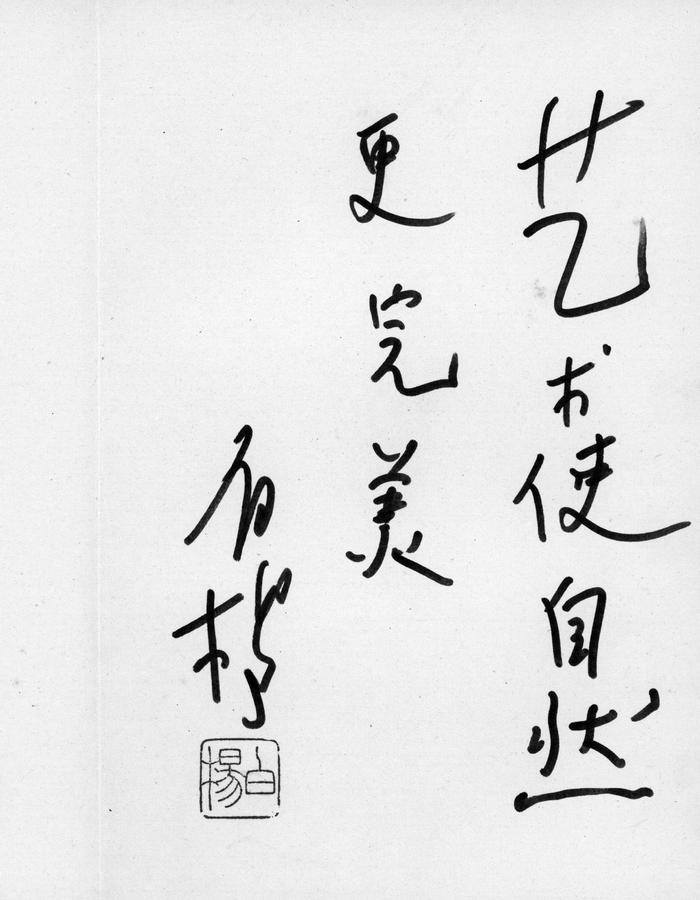 艺术使自然
更完美
白杨